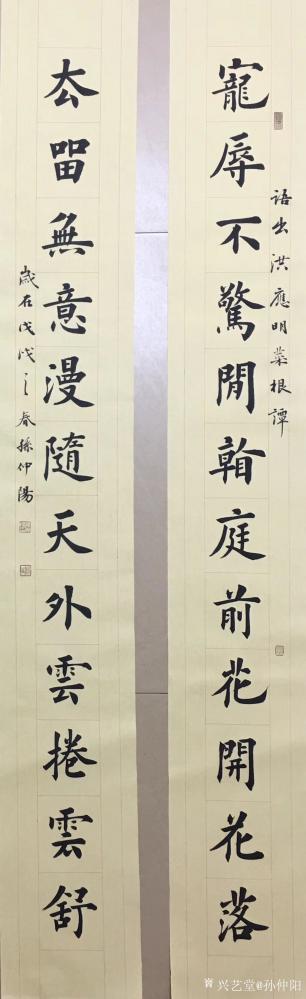 語出洪應明菜根譚
寵辱不驚閒看庭前花開花落
厺㽞無意漫隨天外雲捲雲舒
歲在戊戌之春孫仲陽
兴艺堂@孙仲阳